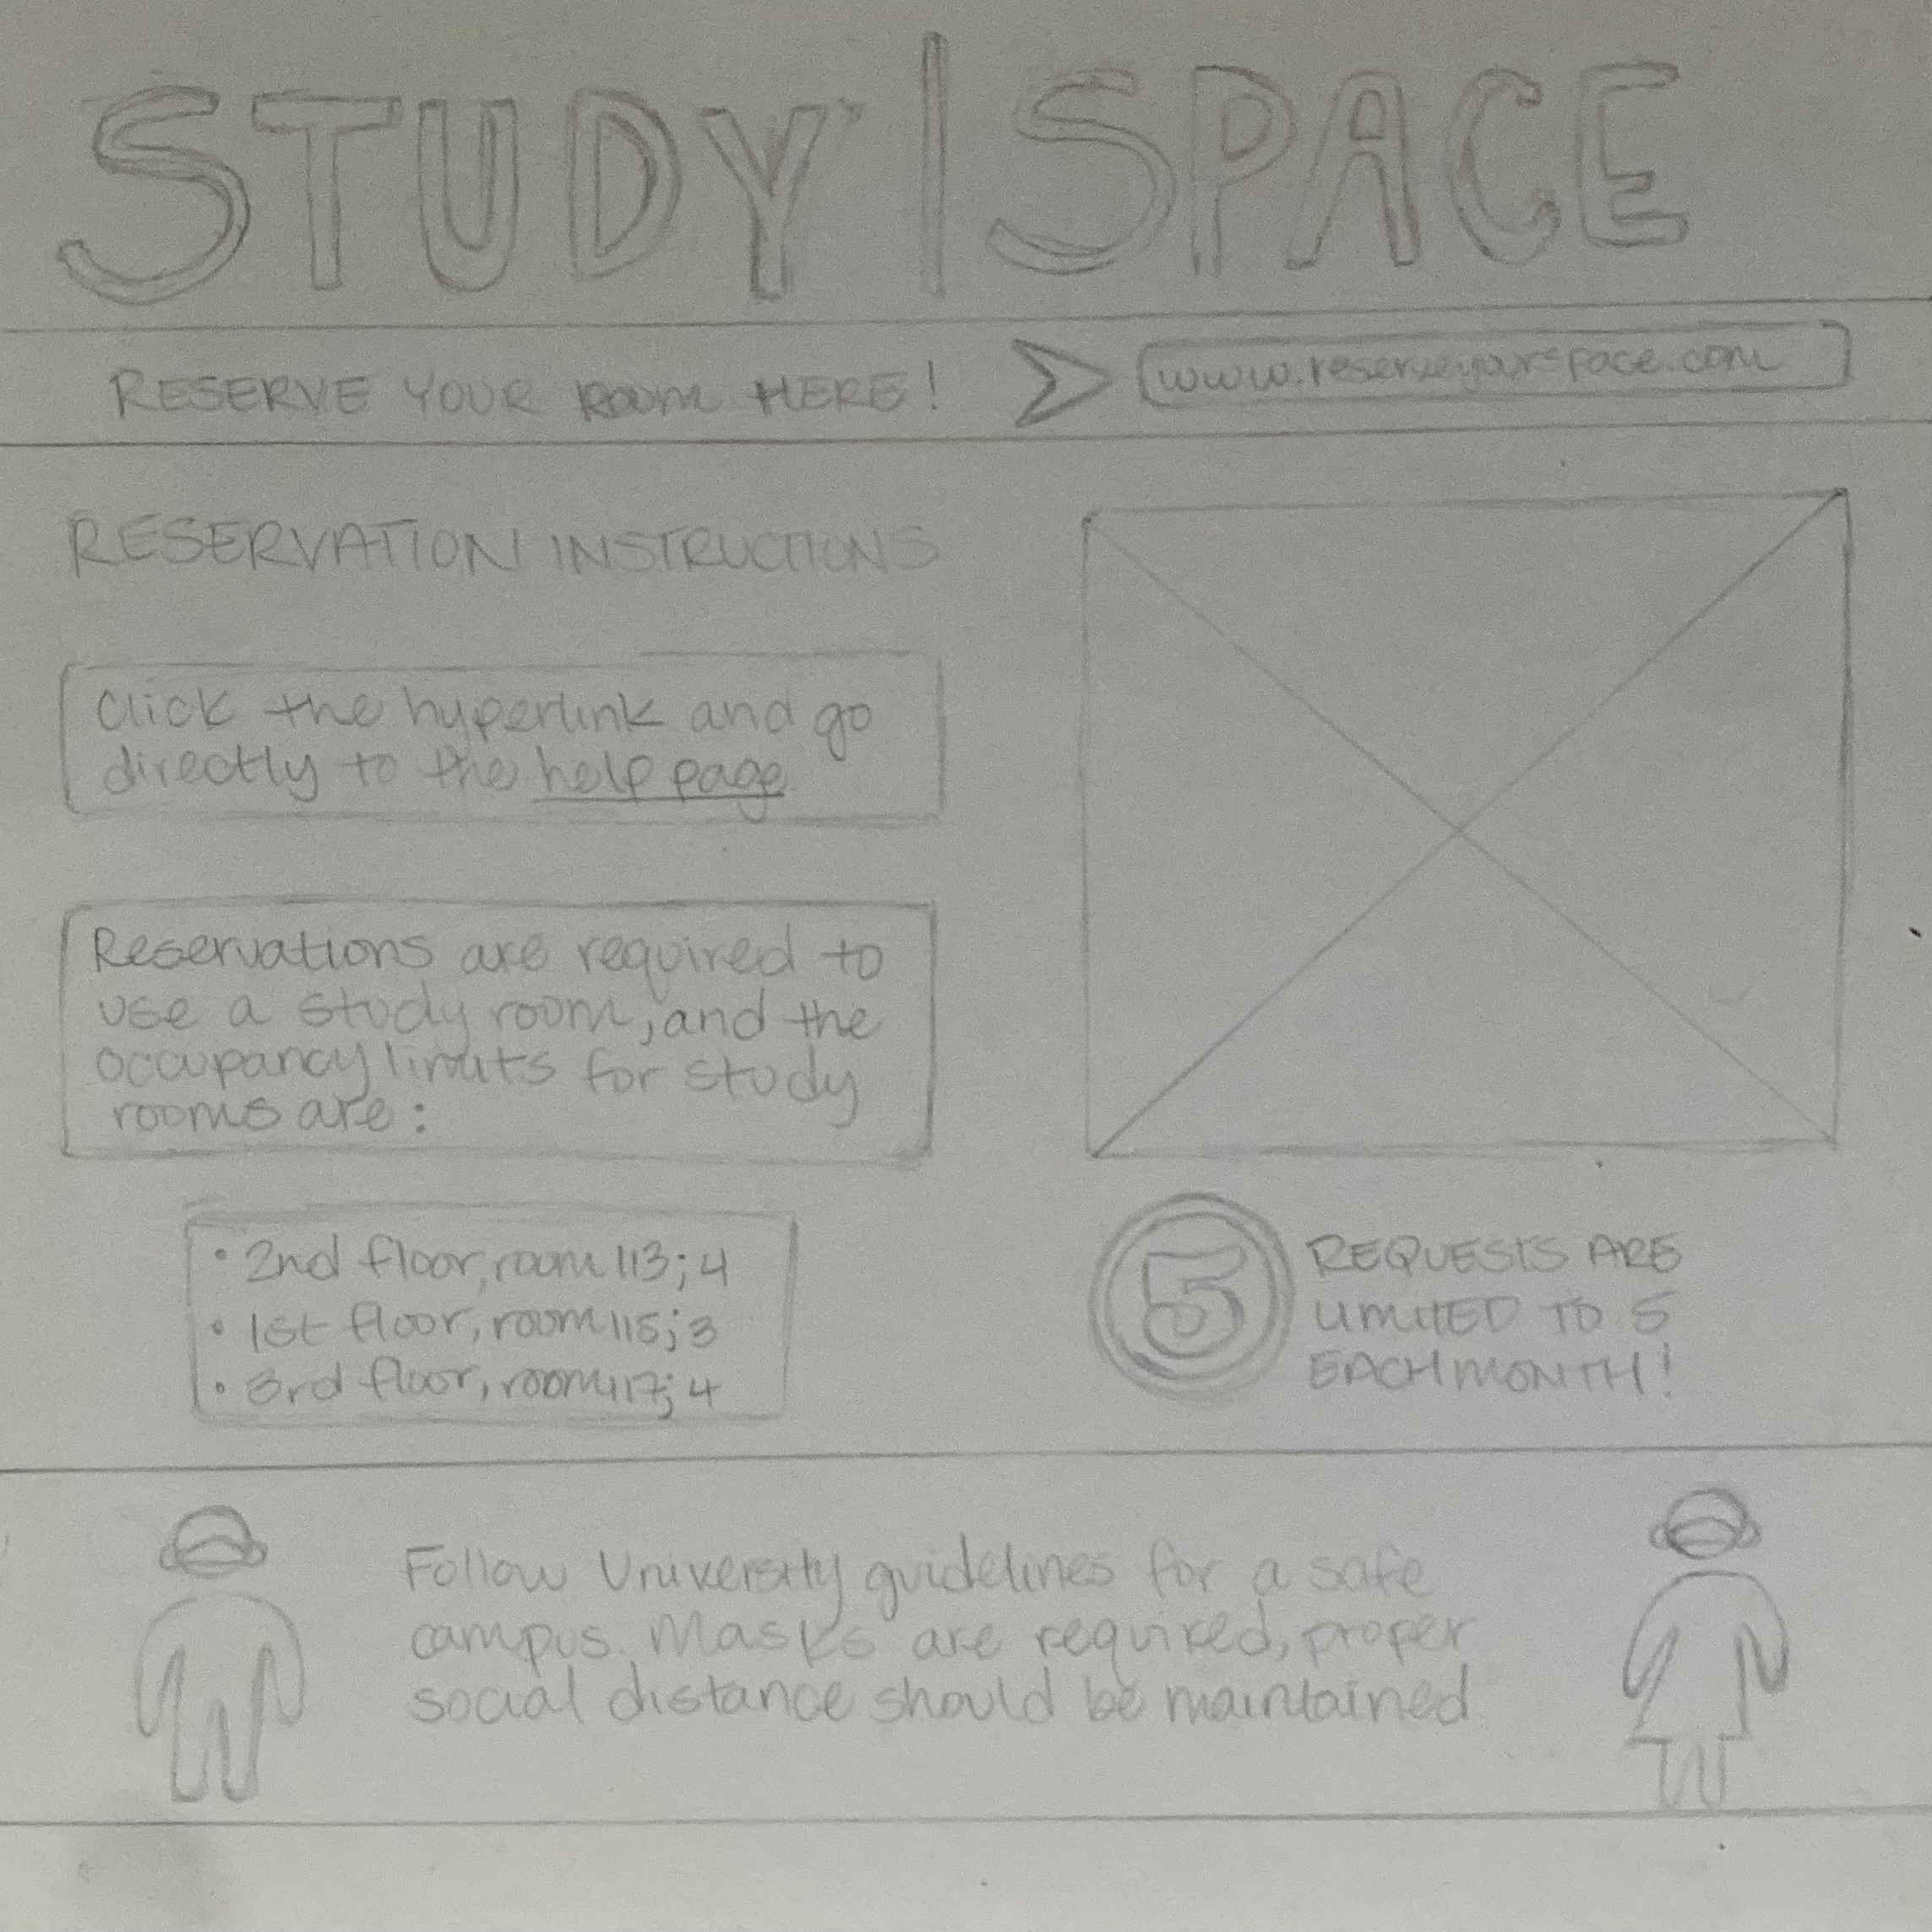 STUDY | SPACE
RESERVE YOUR ROOM HERE!
www.reserveyourspace.com
RESERVATION INSTRUCTIONS
Click the hyperlink and go
directly to the help page
Reservations are required to
use a study room, and the
occupancy limits for study
rooms are:
• 2nd floor, room 113; 4
• 1st floor, room 115; 3
• 3rd floor, room 117; 4
5
REQUESTS ARE
LIMITED TO 5
EACH MONTH!
Follow University guidelines for a safe
campus. Masks are required, proper
social distance should be maintained